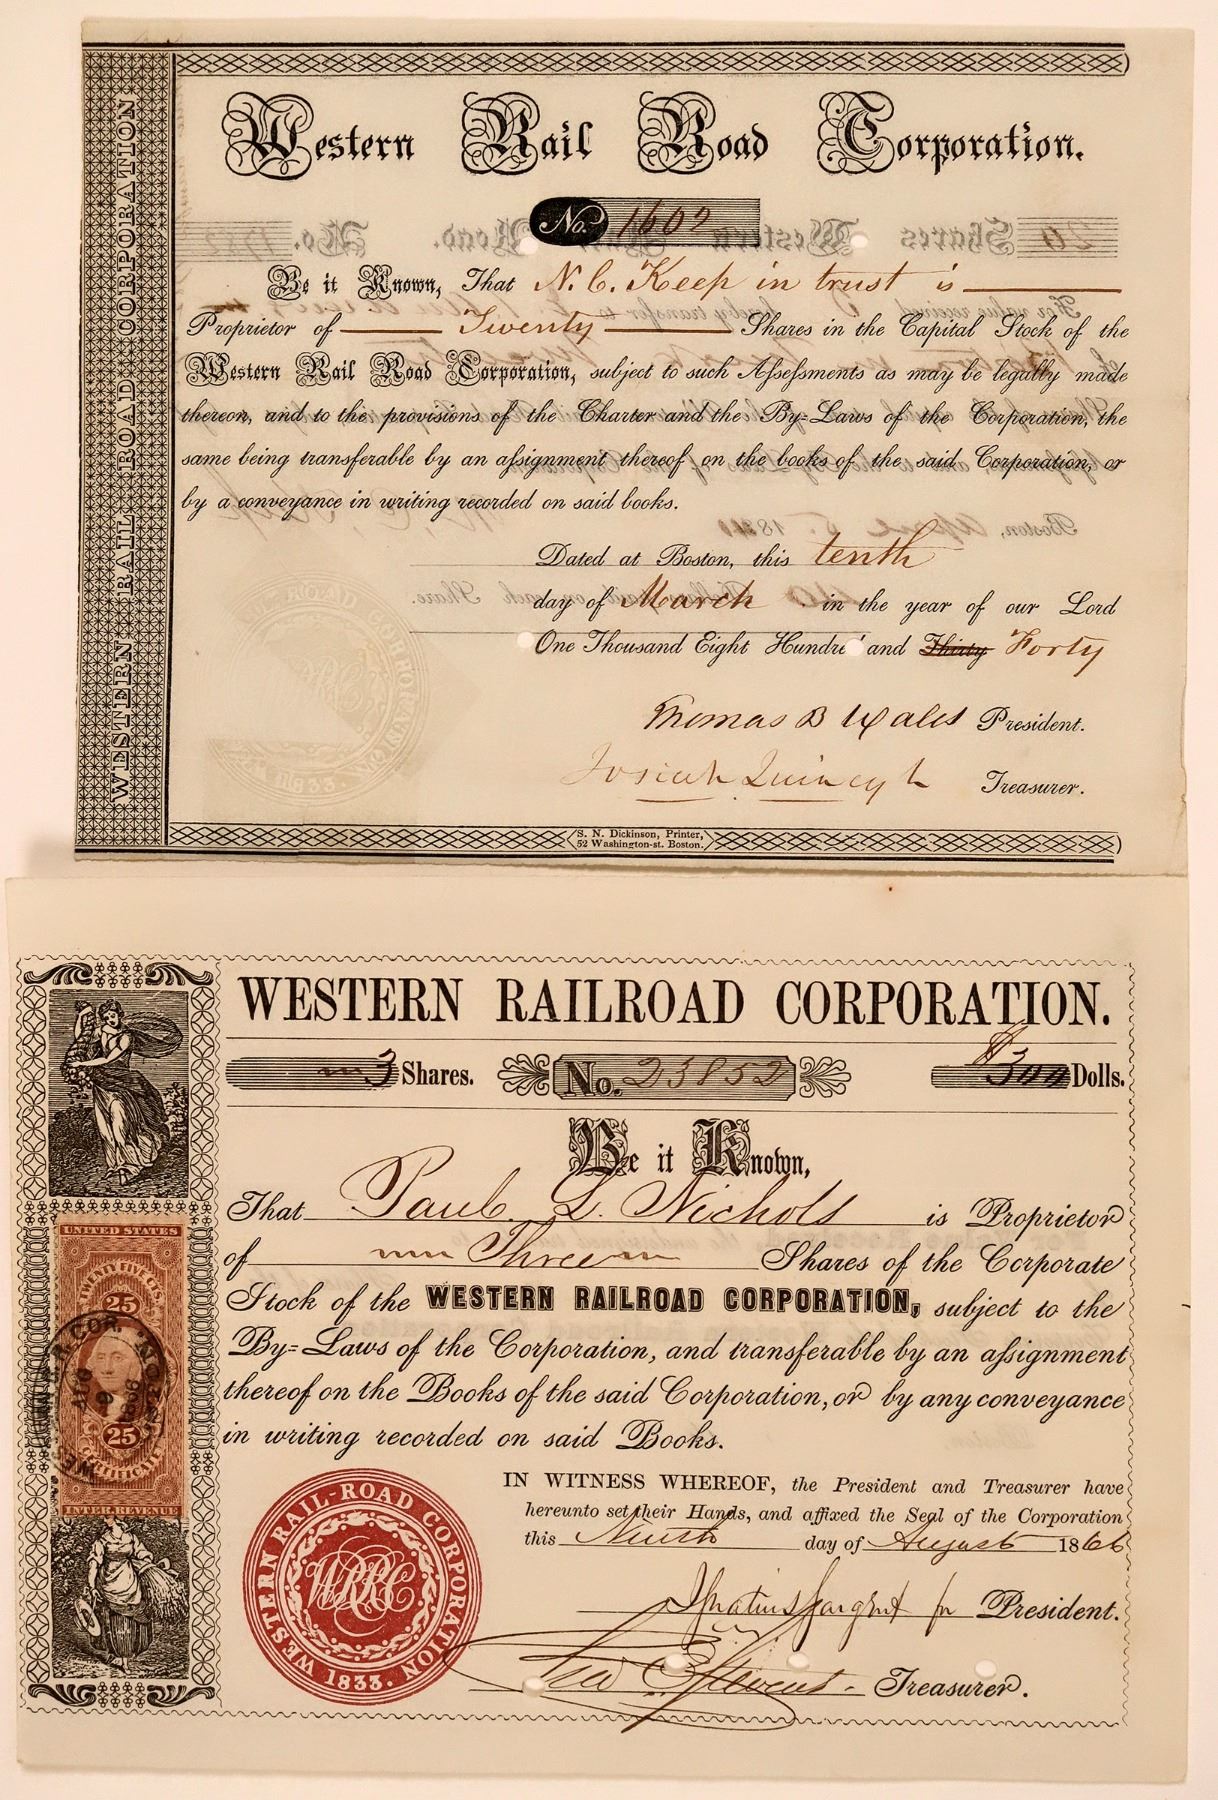 WESTERN RAIL ROAD CORPORATION
Western Rail Road Corporation.
No. 1602
Be it Known, That N. C. Keep in trust is
Proprietor of Twenty Shares in the Capital Stock of the
Western Rail Road Corporation, subject to such Assessments as may be legally made
thereon, and to the provisions of the Charter and the By-Laws of the Corporation, the
same being transferable by an assignment thereof on the books of the said Corporation, or
by a conveyance in writing recorded on said books.
Dated at Boston, this tenth
day of March in the year of our Lord
One Thousand Eight Hundred and Thirty Forty
Thomas B Wales President.
Josiah Quincy Jr Treasurer.
S. N. Dickinson, Printer,
52 Washington-st. Boston.
WESTERN RAILROAD CORPORATION.
3 Shares. No. 23852 $300 Dolls.
Be it Known,
That Paul L. Nichols is Proprietor
of Three Shares of the Corporate
Stock of the WESTERN RAILROAD CORPORATION, subject to the
By-Laws of the Corporation, and transferable by an assignment
thereof on the Books of the said Corporation, or by any conveyance
in writing recorded on said Books.
IN WITNESS WHEREOF, the President and Treasurer have
hereunto set their Hands, and affixed the Seal of the Corporation
this Ninth day of August 1866
Ignatius Sargent pr President.
Geo E Stevens. Treasurer.
WESTERN RAIL-ROAD CORPORATION
WRRC
1833.
UNITED STATES
TWENTY FIVE CTS.
25
AUG
9
1866
25
CERTIFICATE
INTER. REVENUE